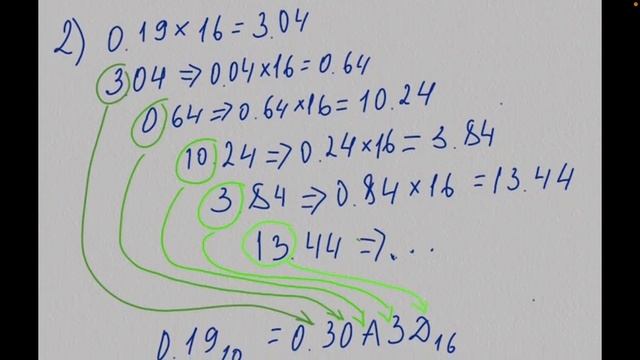 2) 0.19×16=3.04
3.04 ⇒ 0.04×16=0.64
0.64 ⇒ 0.64×16=10.24
10.24 ⇒ 0.24×16=3.84
3.84 ⇒ 0.84×16=13.44
13.44 ⇒ ...
0.19₁₀ = 0.30A3D₁₆